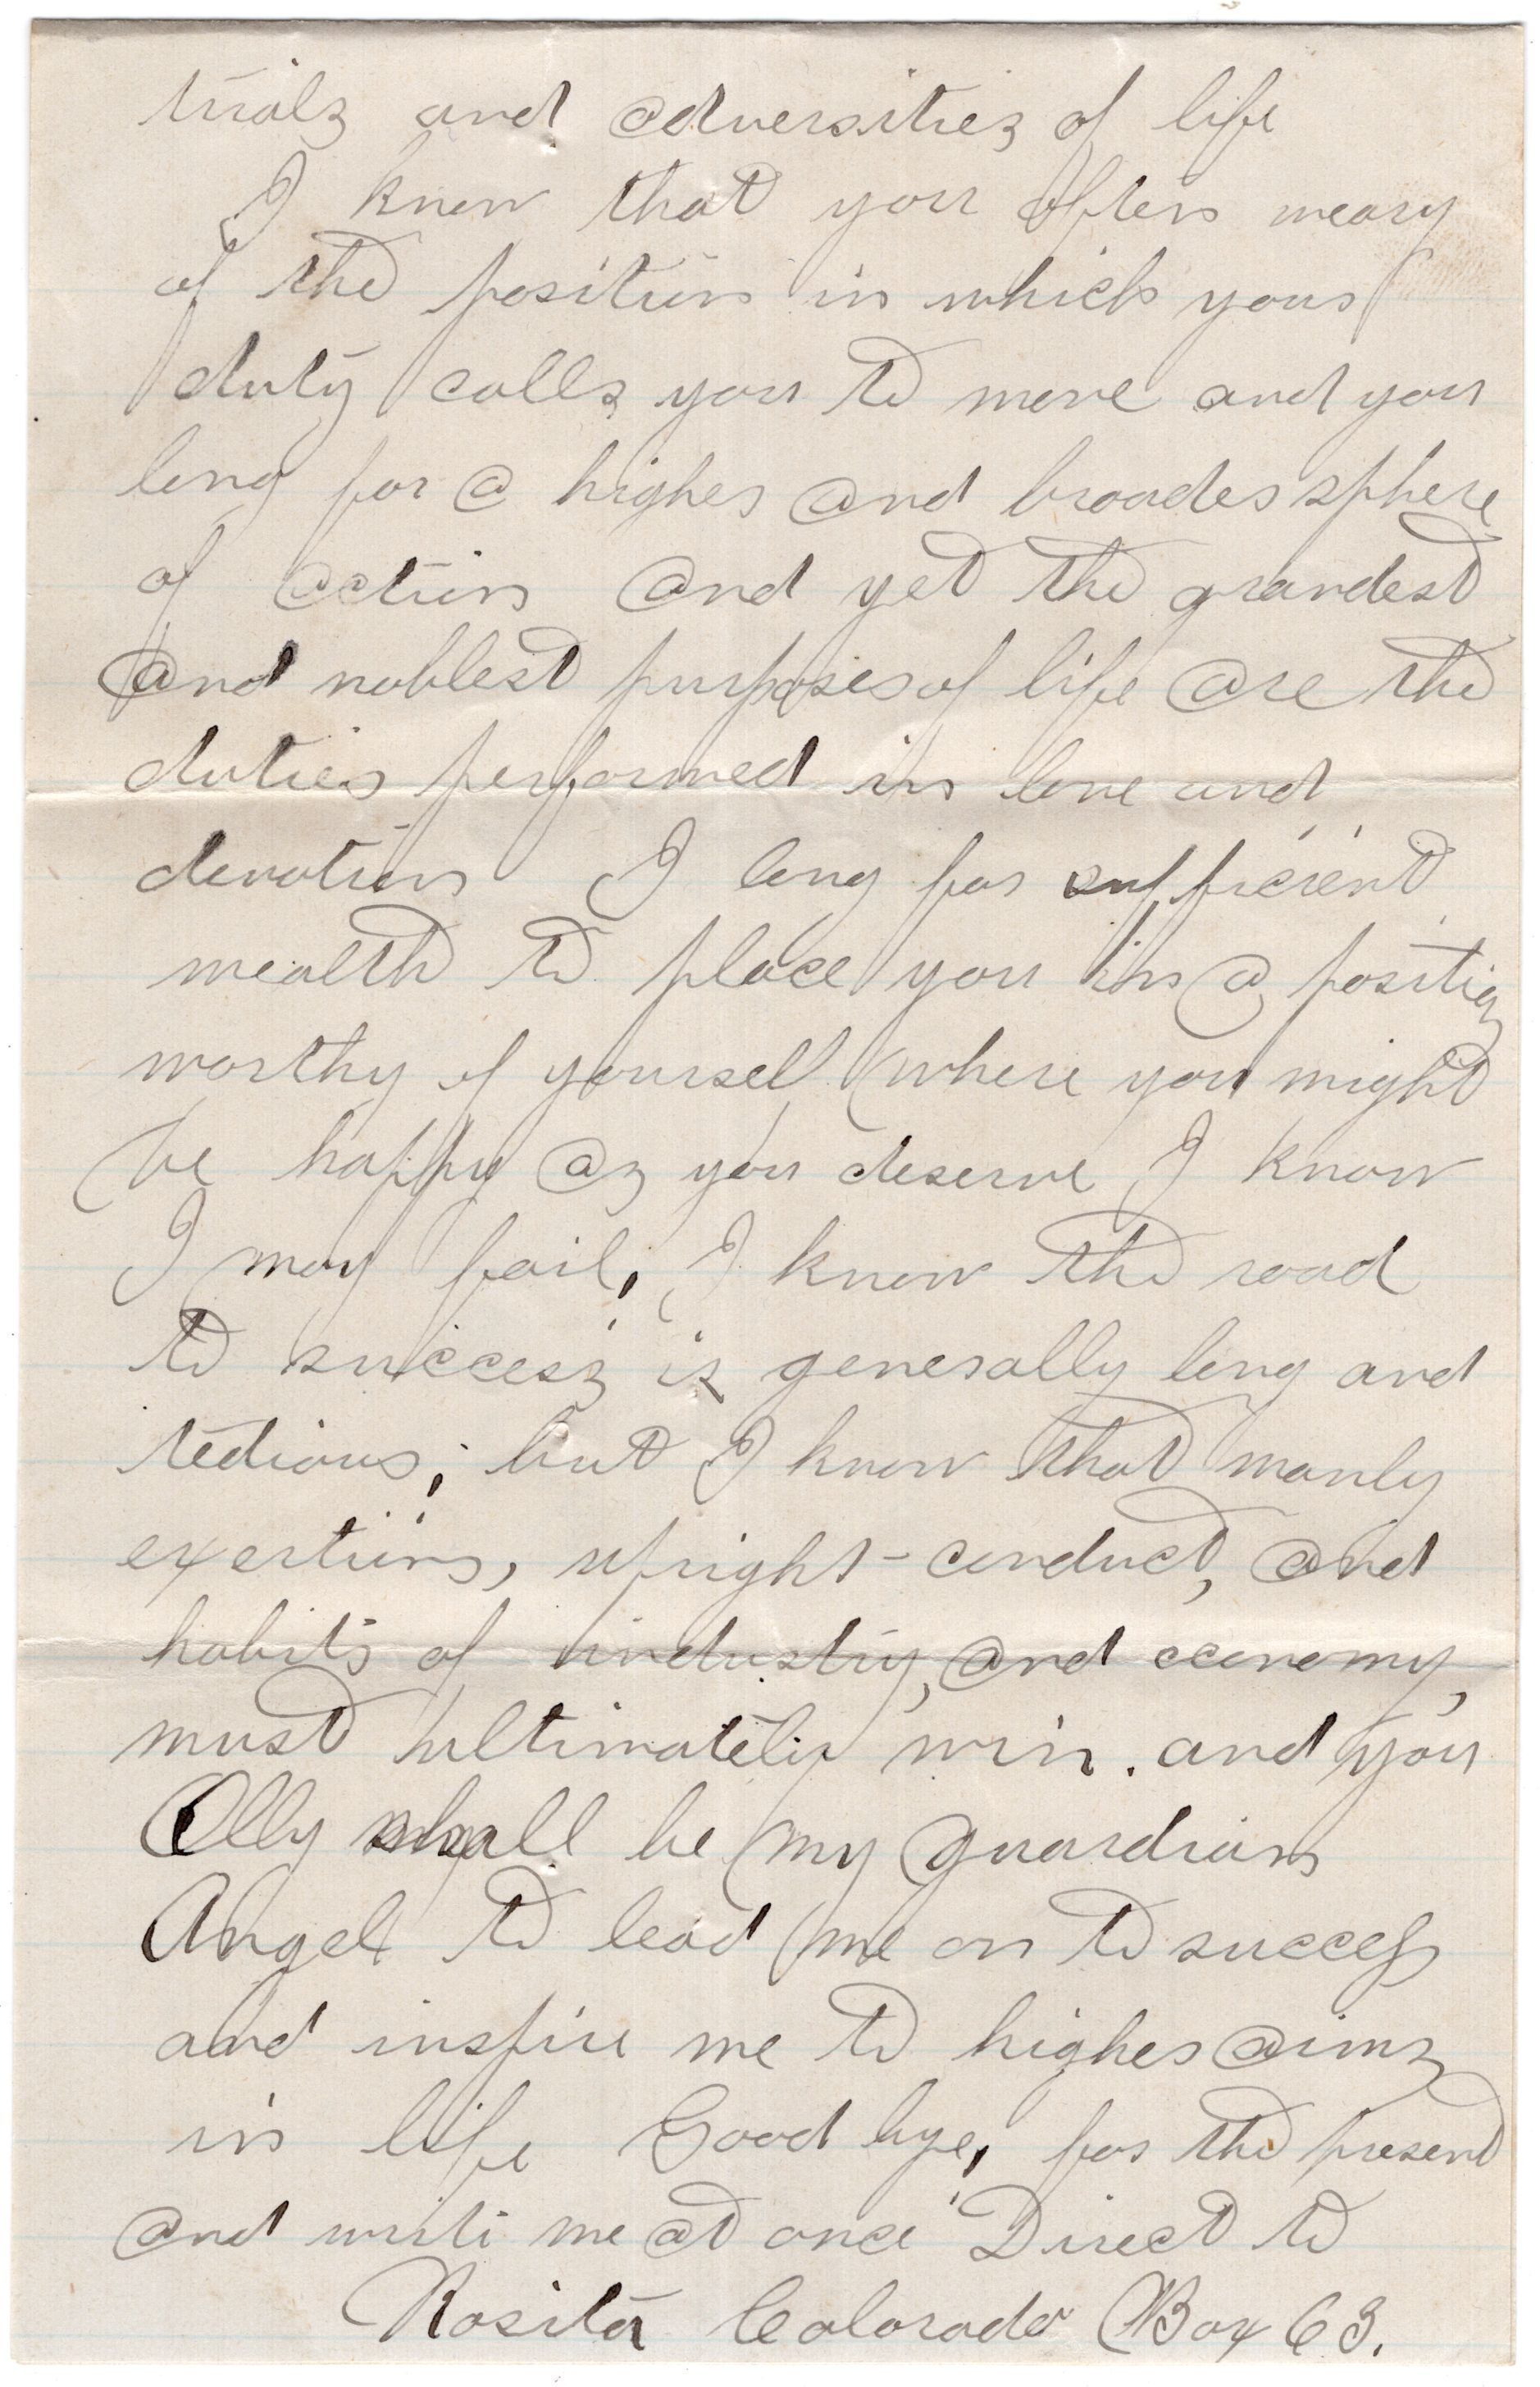 trials and adversities of life
I know that you often weary
of the position in which your
duty calls you to move and you
long for a higher and broader sphere
of action and yet the grandest
and noblest purposes of life are the
duties performed in love and
devotion I long for sufficient
wealth to place you in a position
worthy of yourself where you might
be happy as you deserve I know
I may fail, I know the road
to success is generally long and
tedious; but I know that manly
exertions, upright-conduct, and
habits of industry, and economy,
must ultimately win. and you
Olly shall be my guardian
Angel to lead me on to success
and inspire me to higher aims
in life Good bye, for the present
and write me at once Direct to
Rosita Colorado Box 63.